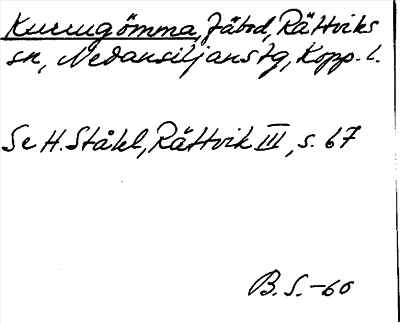 Kurrugömma, fäbod, Rättviks
sn, Nedansiljans tg, Kopp. l.
Se H. Ståhl, Rättvik III, s. 67
B. S. -60